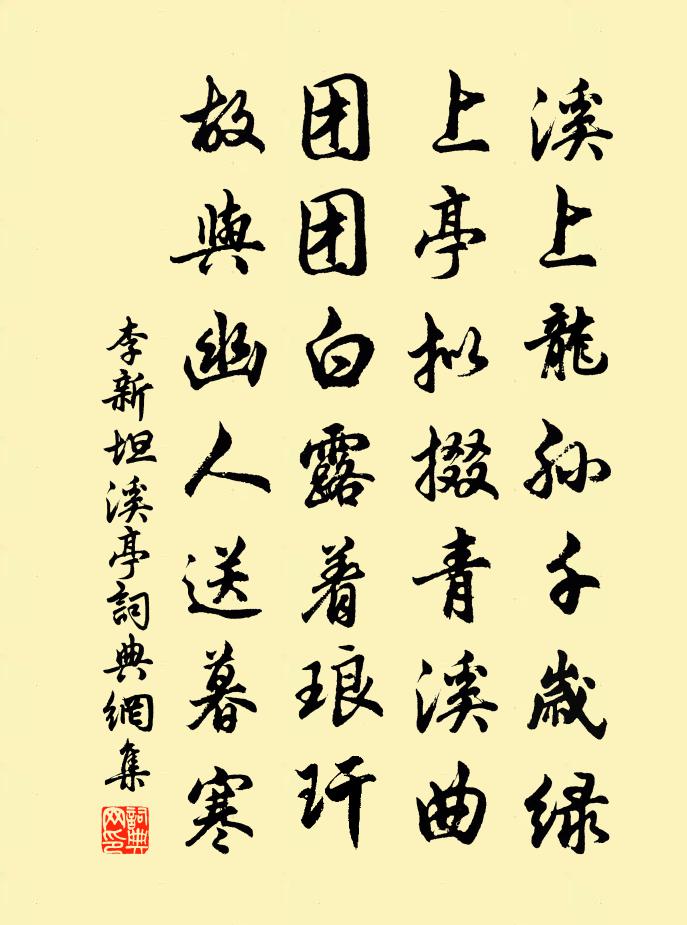 溪上龍孙千歳绿
上亭拟掇青溪曲
团团白露着琅玕
故與幽人送暮寒
李新坦溪亭詞典網集
詞典网印